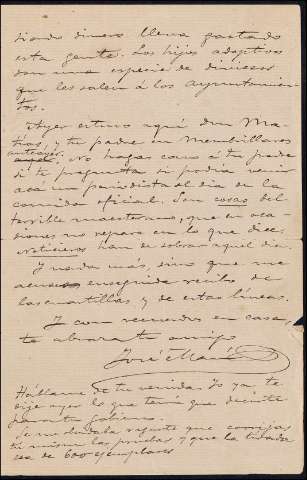 dinero lleva gastado
esta gente. Los hijos adoptivos
son una especie de divieso
que les salen á los ayuntamien-
tos.
Ayer estuvo aquí Don Ma-
tías, y tu padre en Membrillares
anteayer. No hagas caso á tu padre
si te pregunta si podría venir
acá un periodista al día de la
comida oficial. Son cosas del
terrible maestrazo, que en oca-
siones no repara en lo que dice.
Noticieros han de sobrar aquel día.
Y nada más, sino que me
acuses enseguida recibo de
las cuartillas y de estas líneas.
Y con recuerdos en casa,
te abraza tu amigo
José María
Háblame de tu venida. Yo ya te
dije ayer lo que tenía que decirte
para tu gobierno.
Se me olvidaba rogarte que corrijas
tú mismo las pruebas y que la tirada
sea de 600 ejemplares